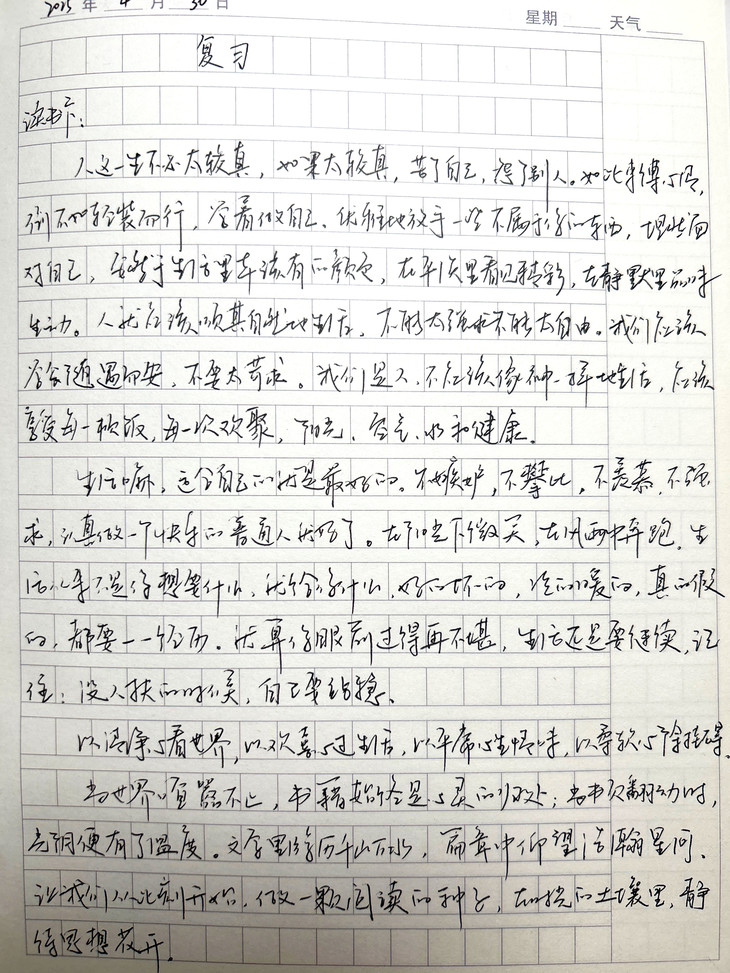 2025 年 4 月 30 日 星期 天气
复习
读书卡:
人这一生不必太较真，如果太较真，苦了自己，怨了别人。如此束缚心情，
倒不如轻装而行，学着做自己、优雅地放手一些不属于你的东西，埋些面
对自己，安然于生活里本该有的颜色，在平淡里看见精彩，在静默里品味
生动。人就应该顺其自然地生活，不能太强求不能太自由。我们应该
学会随遇而安，不要太苛求。我们是人，不应该像神一样地生活，应该
享受每一顿饭，每一次欢聚，阳光、空气、水和健康。
生活嘛，适合自己的就是最好的。不嫉妒，不攀比，不羡慕，不强
求，认真做一个快乐的普通人就好了。在阳光下微笑，在风雨中奔跑，生
活从来不是你想要什么，就给你什么，好的坏的，冷的暖的，真的假
的，都要一一经历。就算你眼前过得再不堪，生活还是要继续，记
住：没人扶的时候，自己要站稳。
以清净心看世界，以欢喜心过生活，以平常心生情味，以柔软心除挂碍。
当世界喧嚣不止，书籍始终是心灵的归处；当书页翻动时，
光阴便有了温度。文字里游历千山万水，篇章中仰望浩瀚星河、
让我们从此刻开始，做一颗阅读的种子，在的土壤里，静
待思想花开。